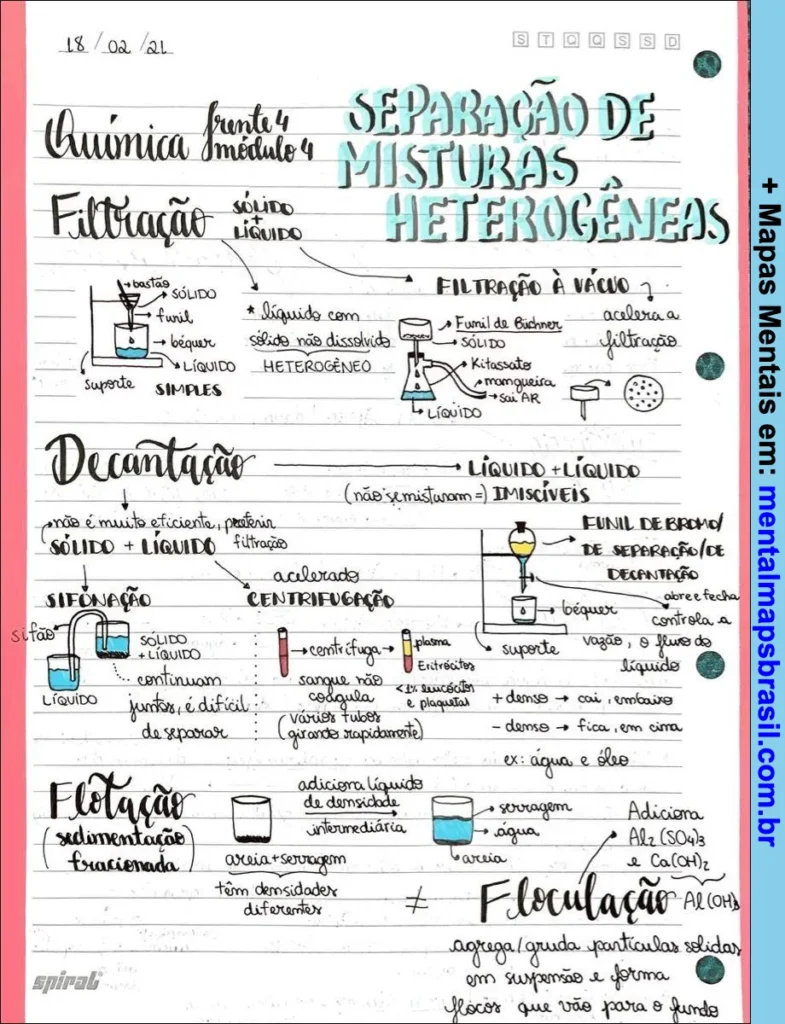 18/02/21
S T Q Q S S D
Química frente 4
módulo 4
SEPARAÇÃO DE
MISTURAS
HETEROGÊNEAS
Filtração SÓLIDO
+
LÍQUIDO
bastão
SÓLIDO
funil
béquer
LÍQUIDO
suporte
SIMPLES
* líquido com
sólido não dissolvido
HETEROGÊNEO
FILTRAÇÃO À VÁCUO
acelera a
filtração
Funil de Büchner
SÓLIDO
Kitassato
mangueira
sai AR
LÍQUIDO
Decantação
LÍQUIDO + LÍQUIDO
(não se misturam =) IMISCÍVEIS
não é muito eficiente, preferir
SÓLIDO + LÍQUIDO filtração
SIFONAÇÃO
sifão
SÓLIDO
+ LÍQUIDO
LÍQUIDO
continuam
juntos, é difícil
de separar
acelerado
CENTRIFUGAÇÃO
centrífuga
plasma
Eritrócitos
<1% leucócitos
e plaquetas
sangue não
coagula
(vários tubos
girando rapidamente)
FUNIL DE BROMO/
DE SEPARAÇÃO/DE
DECANTAÇÃO
abre e fecha
béquer
controla a
vazão, o fluxo do
líquido
suporte
+ denso → cai, embaixo
- denso → fica, em cima
ex: água e óleo
Flotação
(sedimentação
fracionada)
areia + serragem
têm densidades
diferentes
adiciona líquido
de densidade
intermediária
serragem
água
areia
≠
Floculação
Adiciona
Al₂(SO₄)₃
e Ca(OH)₂
Al(OH)₃
agrega/gruda partículas sólidas
em suspensão e forma
flocos que vão para o fundo
spiral
+ Mapas Mentais em: mentalmapsbrasil.com.br